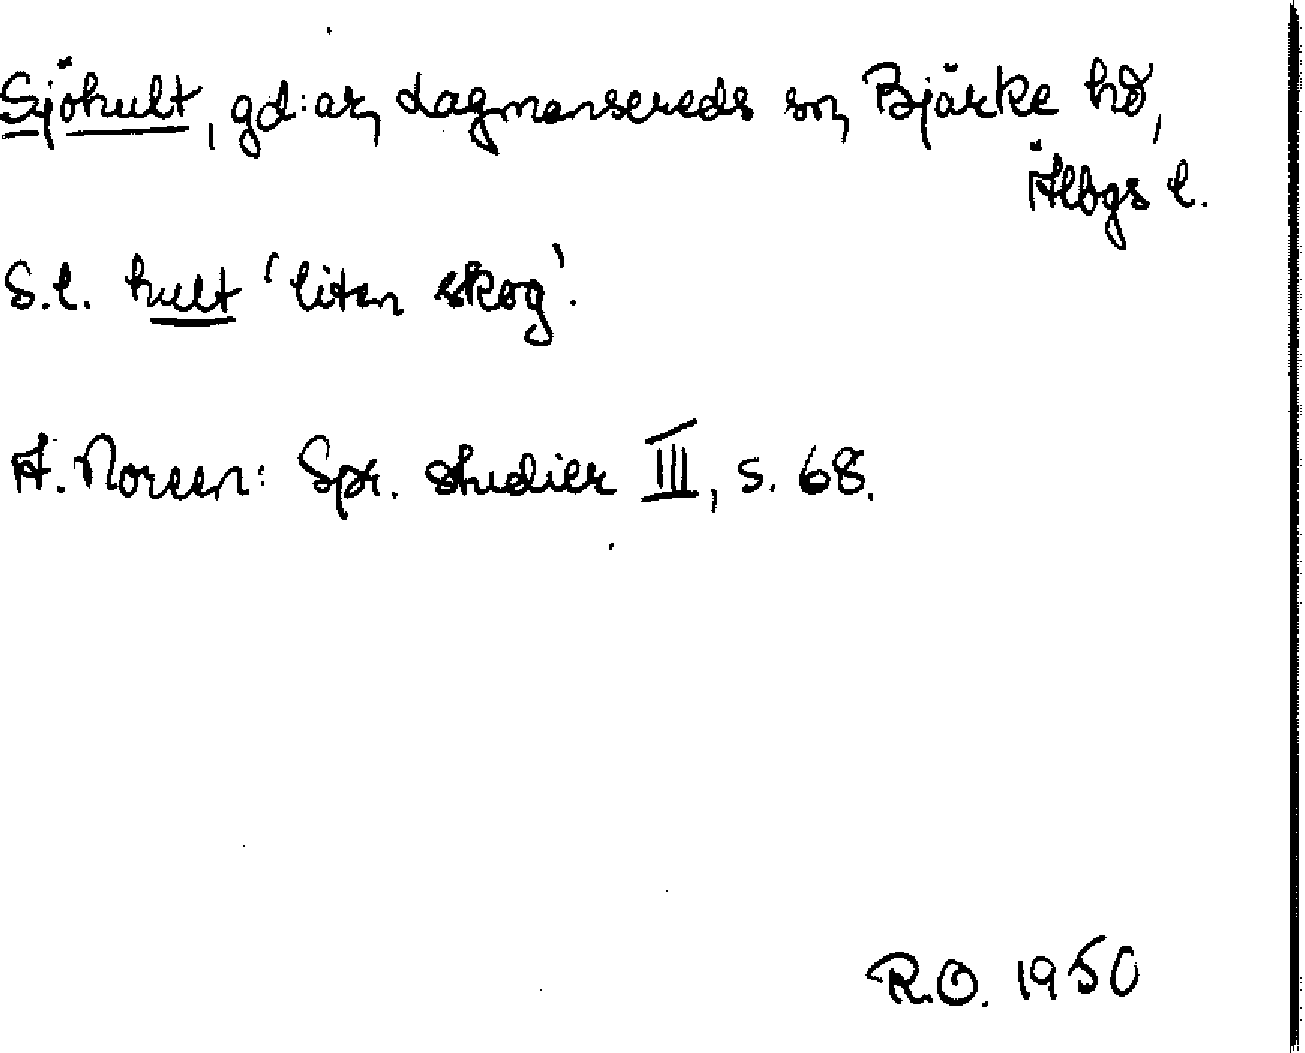 Sjöhult, gd:ar, Lagmansereds sn, Bjärke hd,
Älvbgs l.
S.l. hult 'liten skog'.
A. Noreen: Spr. studier III, s. 68.
R.O. 1950